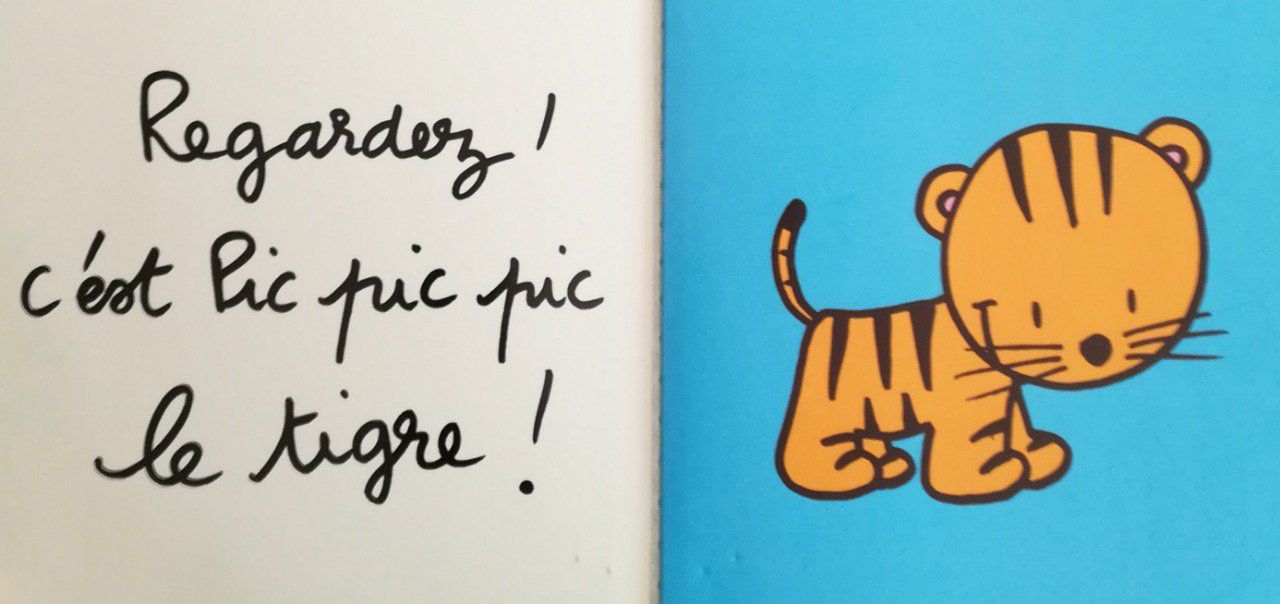 Regardez !
c'est Pic pic pic
le tigre !